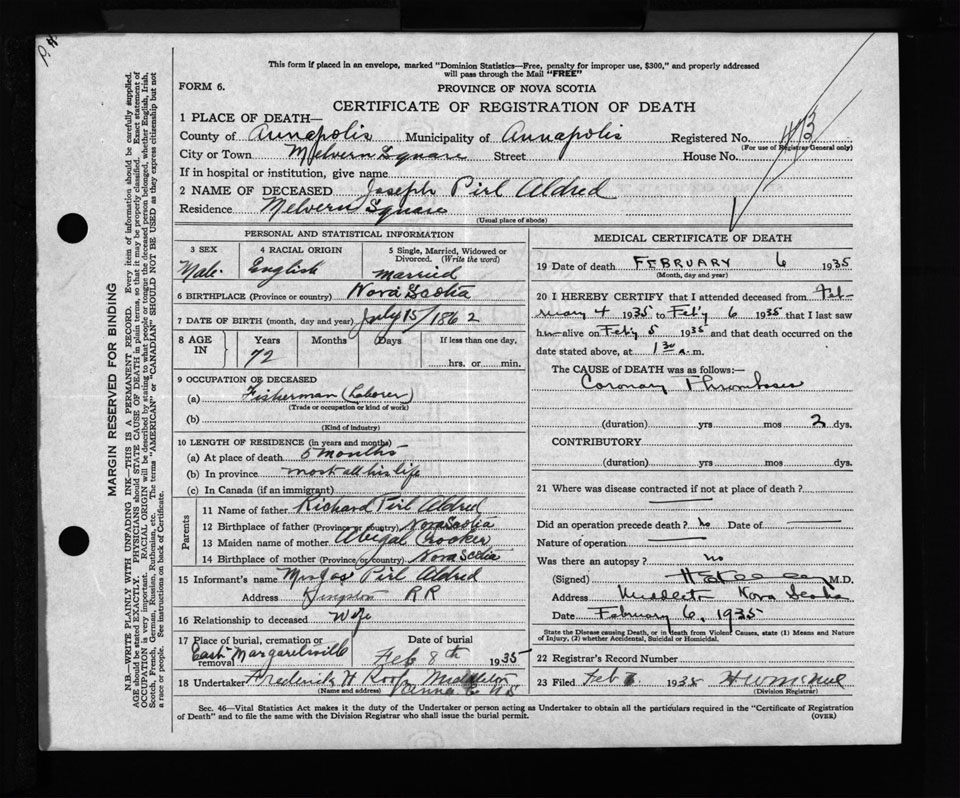 P. H.
This form if placed in an envelope, marked "Dominion Statistics—Free, penalty for improper use, $300," and properly addressed
will pass through the Mail "FREE"
FORM 6.
PROVINCE OF NOVA SCOTIA
CERTIFICATE OF REGISTRATION OF DEATH
1 PLACE OF DEATH—
County of Annapolis Municipality of Annapolis Registered No.
(For use of Registrar General only)
City or Town Melvern Square Street House No.
If in hospital or institution, give name
2 NAME OF DECEASED Joseph Pirl Aldred
Residence Melvern Square
(Usual place of abode)
PERSONAL AND STATISTICAL INFORMATION
3 SEX 4 RACIAL ORIGIN 5 Single, Married, Widowed or
Divorced. (Write the word)
Male. English married
6 BIRTHPLACE (Province or country) Nova Scotia
7 DATE OF BIRTH (month, day and year) July 15/1862
8 AGE IN Years Months Days If less than one day,
72 hrs. or min.
9 OCCUPATION OF DECEASED
(a) Fisherman (Laborer)
(Trade or occupation or kind of work)
(b)
(Kind of industry)
10 LENGTH OF RESIDENCE (in years and months)
(a) At place of death 5 months
(b) In province most all his life
(c) In Canada (if an immigrant)
Parents
11 Name of father Richard Pirl Aldred
12 Birthplace of father (Province or country) Nova Scotia
13 Maiden name of mother Abigal Crooker
14 Birthplace of mother (Province or country) Nova Scotia
15 Informant's name Mrs Jos Pirl Aldred
Address Kingston RR
16 Relationship to deceased Wife
17 Place of burial, cremation or removal East Margaretsville Date of burial
Feb 8th 1935
18 Undertaker Frederick H Roop Middleton
(Name and address) N.S
MEDICAL CERTIFICATE OF DEATH
19 Date of death FEBRUARY 6 1935
(Month, day and year)
20 I HEREBY CERTIFY that I attended deceased from Feb-
ruary 4 1935 to Feb'y 6 1935 that I last saw
him alive on Feb'y 5 1935 and that death occurred on the
date stated above, at 1 30 a. m.
The CAUSE OF DEATH was as follows:—
Coronary Thrombosis
(duration) yrs mos 2 dys.
CONTRIBUTORY
(duration) yrs. mos dys.
21 Where was disease contracted if not at place of death?
Did an operation precede death? no Date of
Nature of operation
Was there an autopsy? no
(Signed) M.D.
Address Middleton Nova Scotia
Date February 6, 1935
State the Disease causing Death, or in death from Violent Causes, state (1) Means and Nature
of Injury, (2) whether Accidental, Suicidal or Homicidal.
22 Registrar's Record Number
23 Filed Feb 1935
(Division Registrar)
Sec. 46—Vital Statistics Act makes it the duty of the Undertaker or person acting as Undertaker to obtain all the particulars required in the "Certificate of Registration
of Death" and to file the same with the Division Registrar who shall issue the burial permit.
(OVER)
MARGIN RESERVED FOR BINDING
N.B.—WRITE PLAINLY WITH UNFADING INK—THIS IS A PERMANENT RECORD. Every item of information should be carefully supplied.
AGE should be stated EXACTLY. PHYSICIANS should STATE CAUSE OF DEATH in plain terms, so that it may be properly classified. Exact statement of
OCCUPATION is very important. RACIAL ORIGIN will be described by stating to what people or tongue the deceased person belonged, whether English, Irish,
Scotch, French, German, Russian, Ruthenian, etc. The terms "AMERICAN" or "CANADIAN" SHOULD NOT BE USED as they express citizenship but not
a race or people. See instructions on back of Certificate.